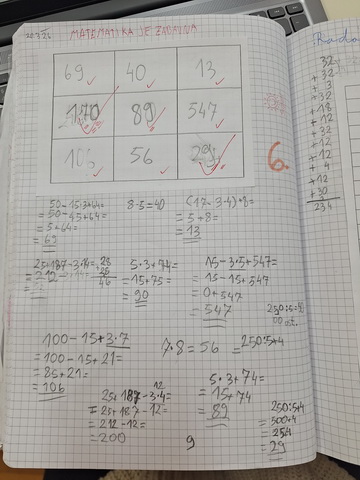 MATEMATIKA JE ZABAVNA
69 40 13
170 89 547
106 56 29
6.
50-15·3+64=
=50-45+64=
=5+64=
=69
8·5=40
(17-3·4)+8=
=5+8=
=13
25+187-3·4=
=212-
5·3+74=
=15+75=
=90
15-3·5+547=
=15-15+547
=0+547
=547
100-15+3·7
=100-15+21=
=85+21=
=106
7·8=56
=250:5+4
25+187-3·4=
=25+187-12=
=212-12=
=200
5·3+74=
=15+74
=89
250:5+4
=29
9
32
+32
+3
+32
+18
+12
+32
+12
+12
+4
+12
+30
234